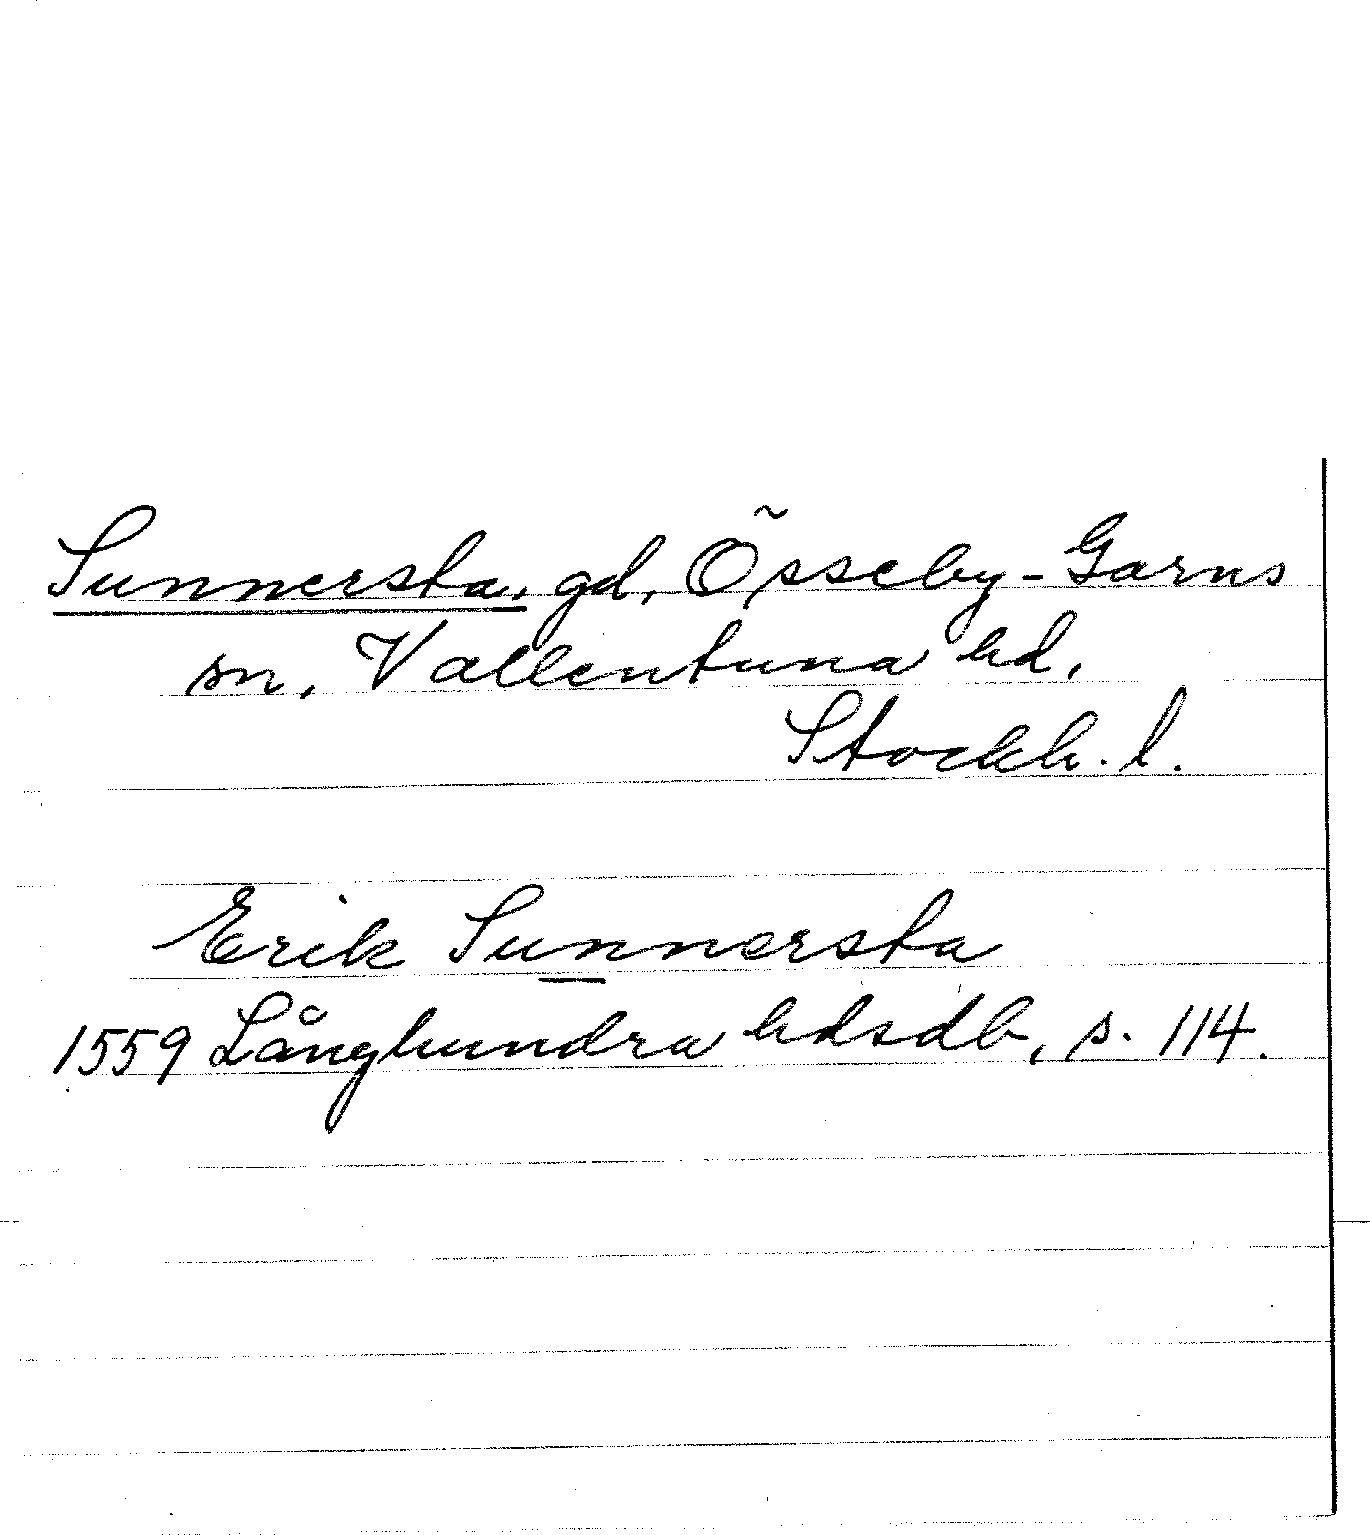 Sunnersta, gd, Össeby-Garns
sn, Vallentuna hd,
Stockh. l.
Erik Sunnersta
1559 Långhundra hdsdb, s. 114.